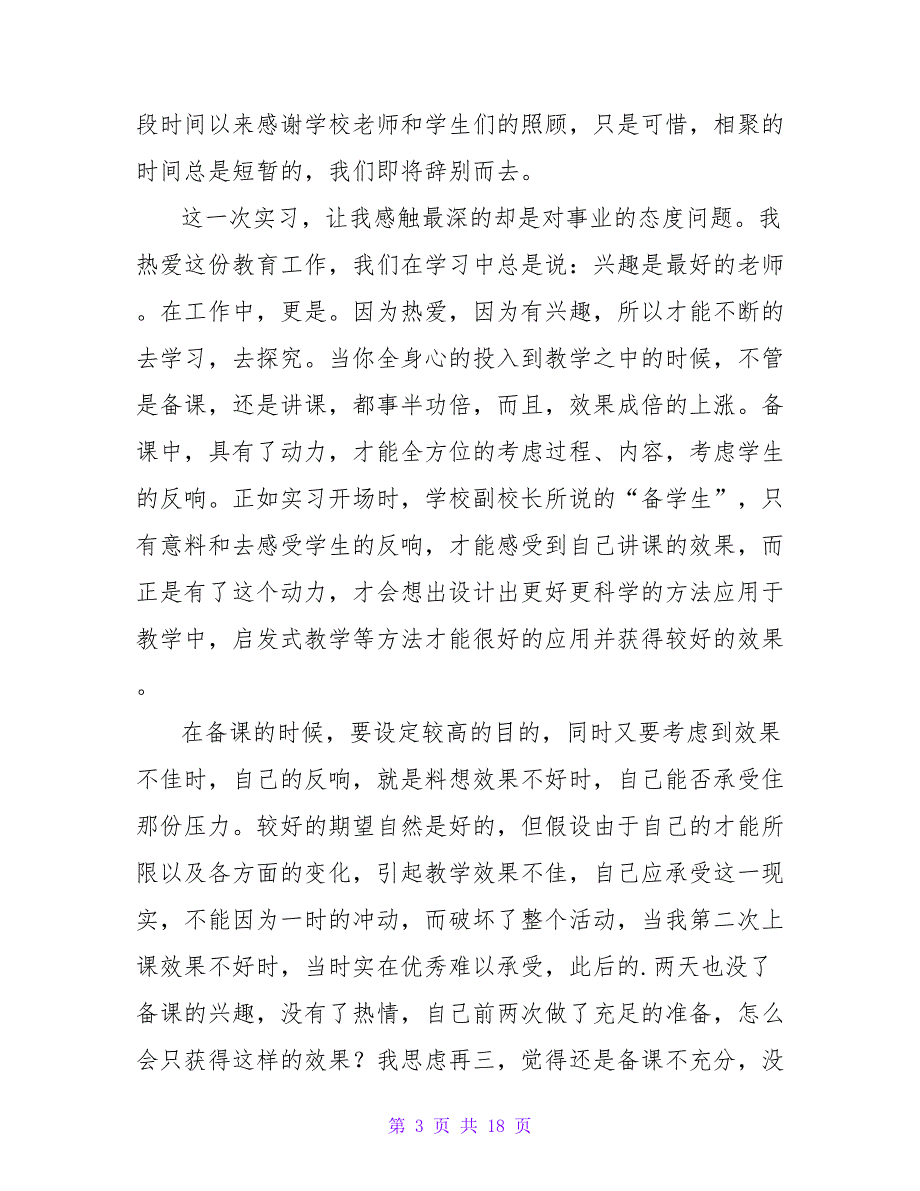 段时间以来感谢学校老师和学生们的照顾，只是可惜，相聚的
时间总是短暂的，我们即将辞别而去。
这一次实习，让我感触最深的却是对事业的态度问题。我
热爱这份教育工作，我们在学习中总是说：兴趣是最好的老师
。在工作中，更是。因为热爱，因为有兴趣，所以才能不断的
去学习，去探究。当你全身心的投入到教学之中的时候，不管
是备课，还是讲课，都事半功倍，而且，效果成倍的上涨。备
课中，具有了动力，才能全方位的考虑过程、内容，考虑学生
的反响。正如实习开场时，学校副校长所说的“备学生”，只
有意料和去感受学生的反响，才能感受到自己讲课的效果，而
正是有了这个动力，才会想出设计出更好更科学的方法应用于
教学中，启发式教学等方法才能很好的应用并获得较好的效果
。
在备课的时候，要设定较高的目的，同时又要考虑到效果
不佳时，自己的反响，就是料想效果不好时，自己能否承受住
那份压力。较好的期望自然是好的，但假设由于自己的才能所
限以及各方面的变化，引起教学效果不佳，自己应承受这一现
实，不能因为一时的冲动，而破坏了整个活动，当我第二次上
课效果不好时，当时实在优秀难以承受，此后的.两天也没了
备课的兴趣，没有了热情，自己前两次做了充足的准备，怎么
会只获得这样的效果？我思虑再三，觉得还是备课不充分，没
第 3 页 共 18 页